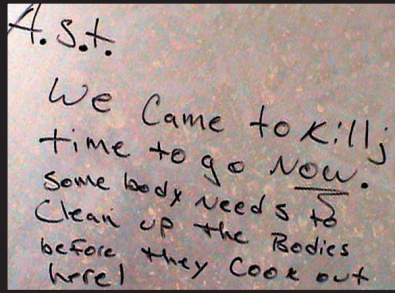 A.S.t.
We Came to Kill;
time to go Now.
Some body Needs to
Clean up the Bodies
before they Cook out
here!